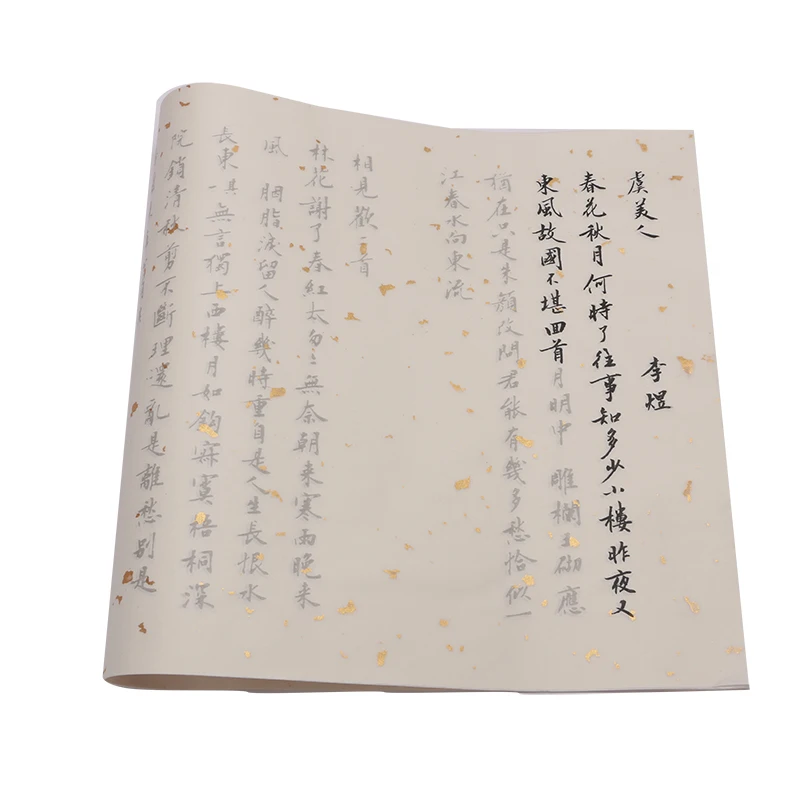 虞美人 李煜
春花秋月何時了往事知多少小樓昨夜又
東風故國不堪回首月明中 雕欄玉砌應
猶在只是朱顏改問君能有幾多愁恰似一
江春水向東流
相見歡一首
林花謝了春紅太匆匆無奈朝来寒雨晚来
風 胭脂淚留人醉幾時重自是人生長恨水
長東 無言獨上西樓月如鉤寂寞梧桐深
院鎖清秋剪不斷理還亂是離愁別是